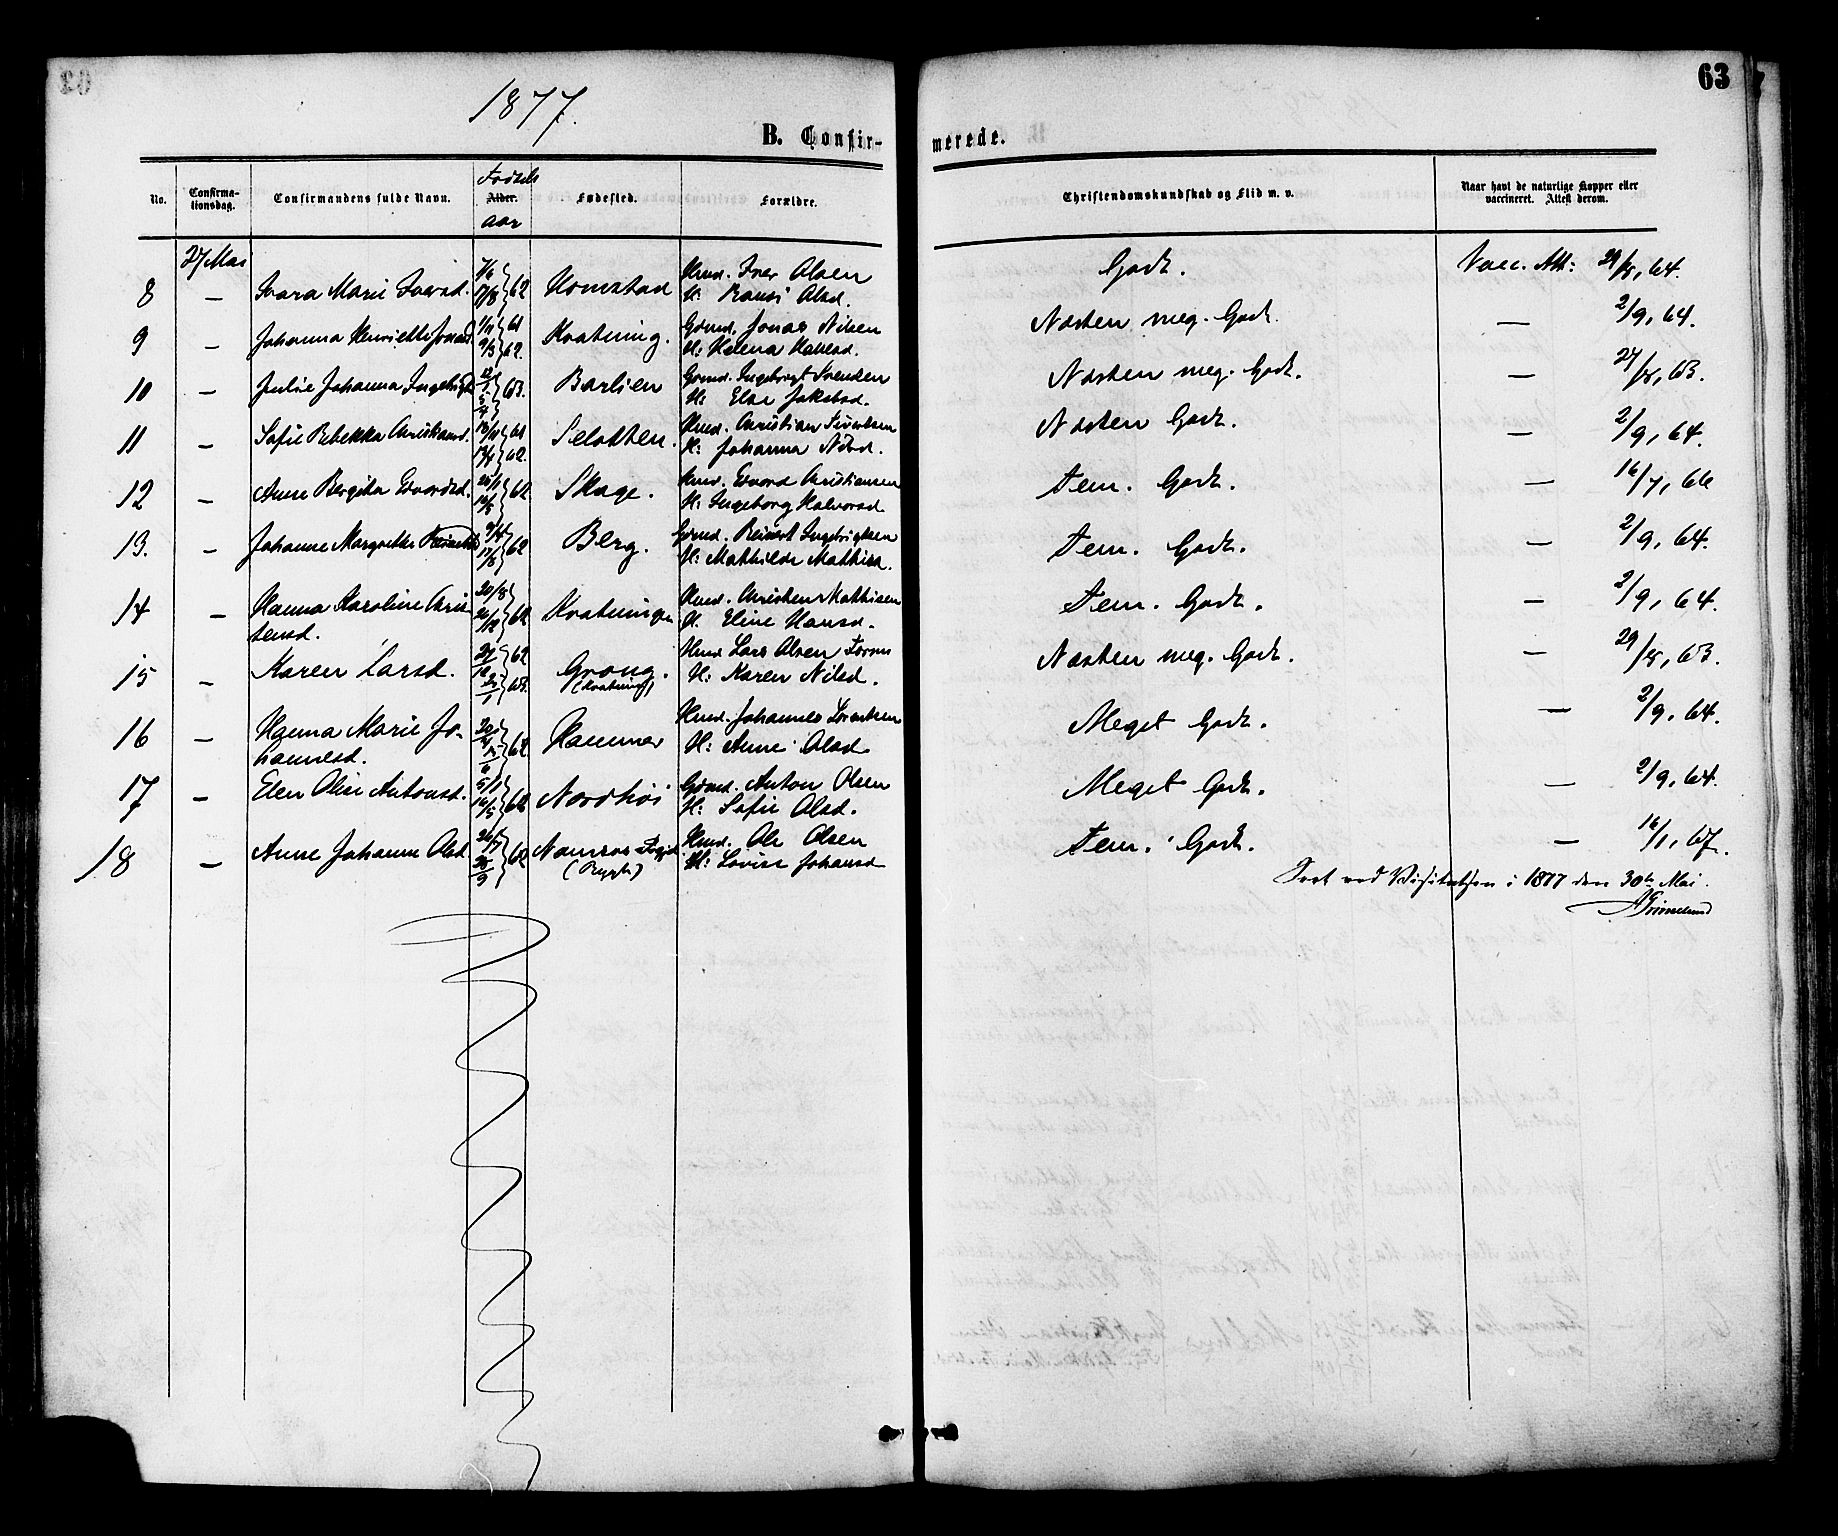 63
1877.
B. Confir-
merede.
No.
Confirma-
tionsdag.
Confirmandens fulde Navn.
Fødsels
Alder.
aar
Fødested.
Forældre.
Christendomskundskab og Flid m. v.
Naar havt de naturlige Kopper eller
vaccineret. Attest derom.
27 Mai
8 — Marie Iversd. 7/6 17/8 62 Homstad Hmd. Iver Olsen H: Olsd. Godt. Vacc. Att: 64.
9 — Johanna Henriette Jonasd. 1/11 61 9/3 62. Kvatning. Gdmd. Jonas Nilsen H: Helena Hansd. Næsten meg. Godt. — 2/9, 64.
10 — Julie Johanna Ingebrigtsd. 63. Barlien Gdmd. Ingebrigt Svendsen H: Else Jakobsd. Næsten meg. Godt. — 27/8, 63.
11 — Sofie Rebekka Christiansd. 61 62. Hmd. Christian H: Johanna Nilsd. Næsten Godt. — 2/9, 64.
12 — Anne Bergitha Edvardsd. 62 Skage. Hmd. Edvard Christiansen H: Ingeborg Halvorsd. Tem. Godt. — 16/7, 66
13. — Johanne Margrethe 62 Berg. Gdmd. Reinert Ingebrigtsen H: Mathilde Mathisd. Tem. Godt. — 2/9, 64.
14 — Hanna Karoline Chris-
tensd. 20/8 62 Kvatningen Hmd. Christen Mathisen H. Eline Hansd. Tem. Godt. — 2/9, 64.
15 — Karen Larsd. 62 63. Grong. (Kvatning) Hmd Lars Olsen H: Karen Nilsd. Næsten meg. Godt. — 29/8, 63.
16 — Hanna Marie Jo-
hannesd. 62 Hammer Hmd. Johannes Lorentsen H: Anne Olsd. Meget Godt. — 2/9, 64.
17 — Elen Oline Antonsd. 5/1 16/5 62 Gdmd. Anton Olsen H: Sofie Olsd. Meget Godt. — 2/9, 64.
18 — Anne Johanne Olsd. 62 Namsos Hmd. Ole Olsen H: Lovise Johansd. Tem. Godt. — 16/1, 67.
Seet ved Visitatsen i 1877 den 30te Mai.
AGrimelund